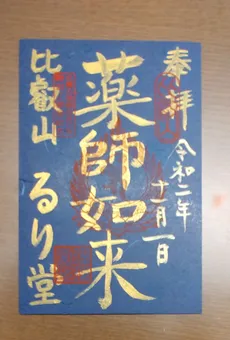 奉拝
令和二年
十一月一日
薬師如来
比叡山
るり堂